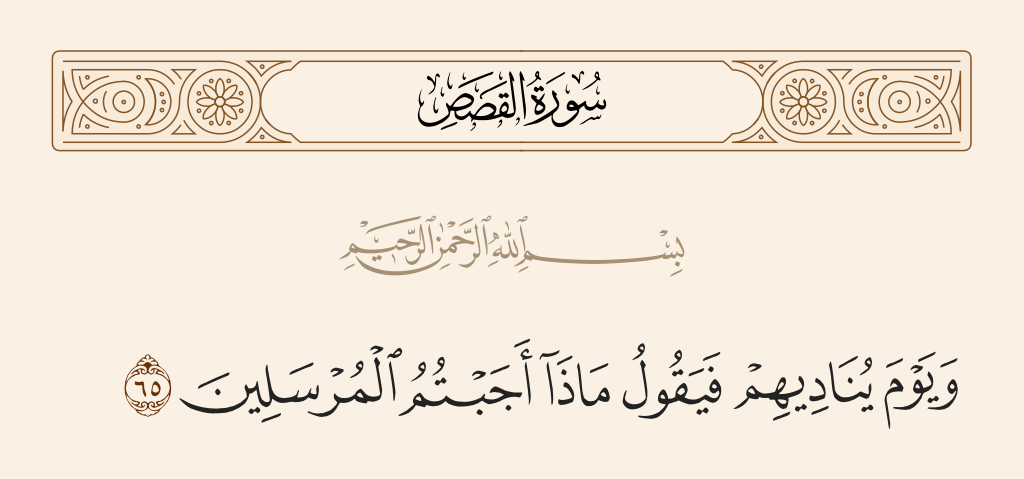 سُورَةُ القَصَصِ
بِسْمِ ٱللَّهِ ٱلرَّحْمَٰنِ ٱلرَّحِيمِ
وَيَوْمَ يُنَادِيهِمْ فَيَقُولُ مَاذَآ أَجَبْتُمُ ٱلْمُرْسَلِينَ ٦٥